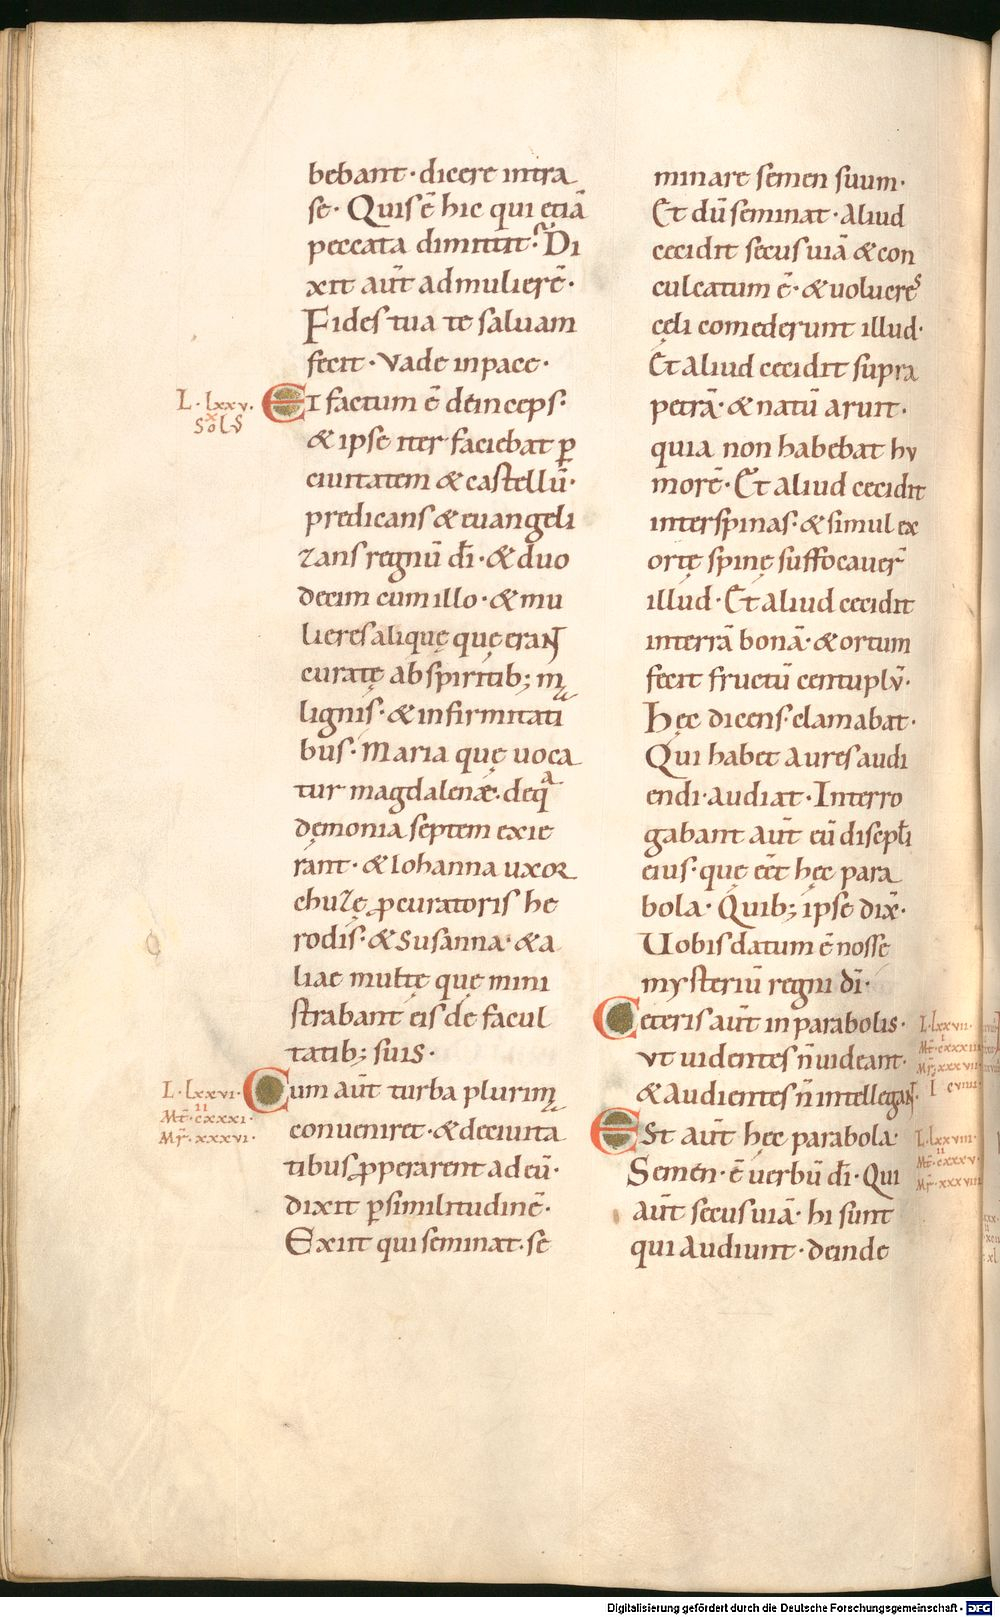 bebant · dicere intra
se · Quis ē hic qui etiā
peccata dimittit · Di
xit aut̄ ad mulierē ·
Fides tua te saluam
fecit · Vade in pace ·
L · lxxv ·
x
Sol̄
Et factum ē deinceps ·
& ipse iter faciebat ꝑ
ciuitatem & castellū ·
predicans & euangeli
zans regnū dī · & duo
decim cum illo · & mu
lieres aliquę que erant
curatę ab spiritib; ma
lignis · & infirmitati
bus · Maria quę uoca
tur magdalenæ · de qa
dęmonia septem exie
rant · & Iohanna uxor
chuzę ꝓcuratoris he
rodis · & Susanna · & a
liae multę quę mini
strabant eis de facul
tatib; suis ·
L · lxxvi ·
II
Mt̄ · cxxxi ·
Mr̄ · xxxvi ·
Cum aut̄ turba plurima
conueniret · & de ciuita
tibus ꝓperarent ad eū ·
dixit ꝑ similitudinē ·
Exiit qui seminat · se
minare semen suum ·
Et dū seminat · aliud
cecidit secus uiā & con
culcatum ē · & uolucres
cęli comederunt illud ·
Et aliud cecidit supra
petrā · & natū aruit ·
quia non habebat hu
morē · Et aliud cecidit
inter spinas · & simul ex
ortę spinę suffocauer̄
illud · Et aliud cecidit
in terrā bonā · & ortum
fecit fructū centuplū ·
Hęc dicens · clamabat ·
Qui habet aures audi
endi · audiat · Interro
gabant aut̄ eū discipli
eius · quę eēt hęc para
bola · Quib; ipse dix̄ ·
Uobis datum ē nosse
mysteriū regni dī ·
Ceteris aut̄ in parabolis ·
L · lxxvii ·
I
Mt̄ · cxxxiii
Mr̄ · xxxvii
ut uidentes n̄ uideant ·
& audientes n̄ intellegant ·
Est aut̄ hęc parabola ·
L · lxxviii ·
II
Mt̄ · cxxxv ·
Mr̄ · xxxviii
Semen · ē uerbū dī · Qui
aut̄ secus uiā · hi sunt
qui audiunt · deinde
Digitalisierung gefördert durch die Deutsche Forschungsgemeinschaft - DFG